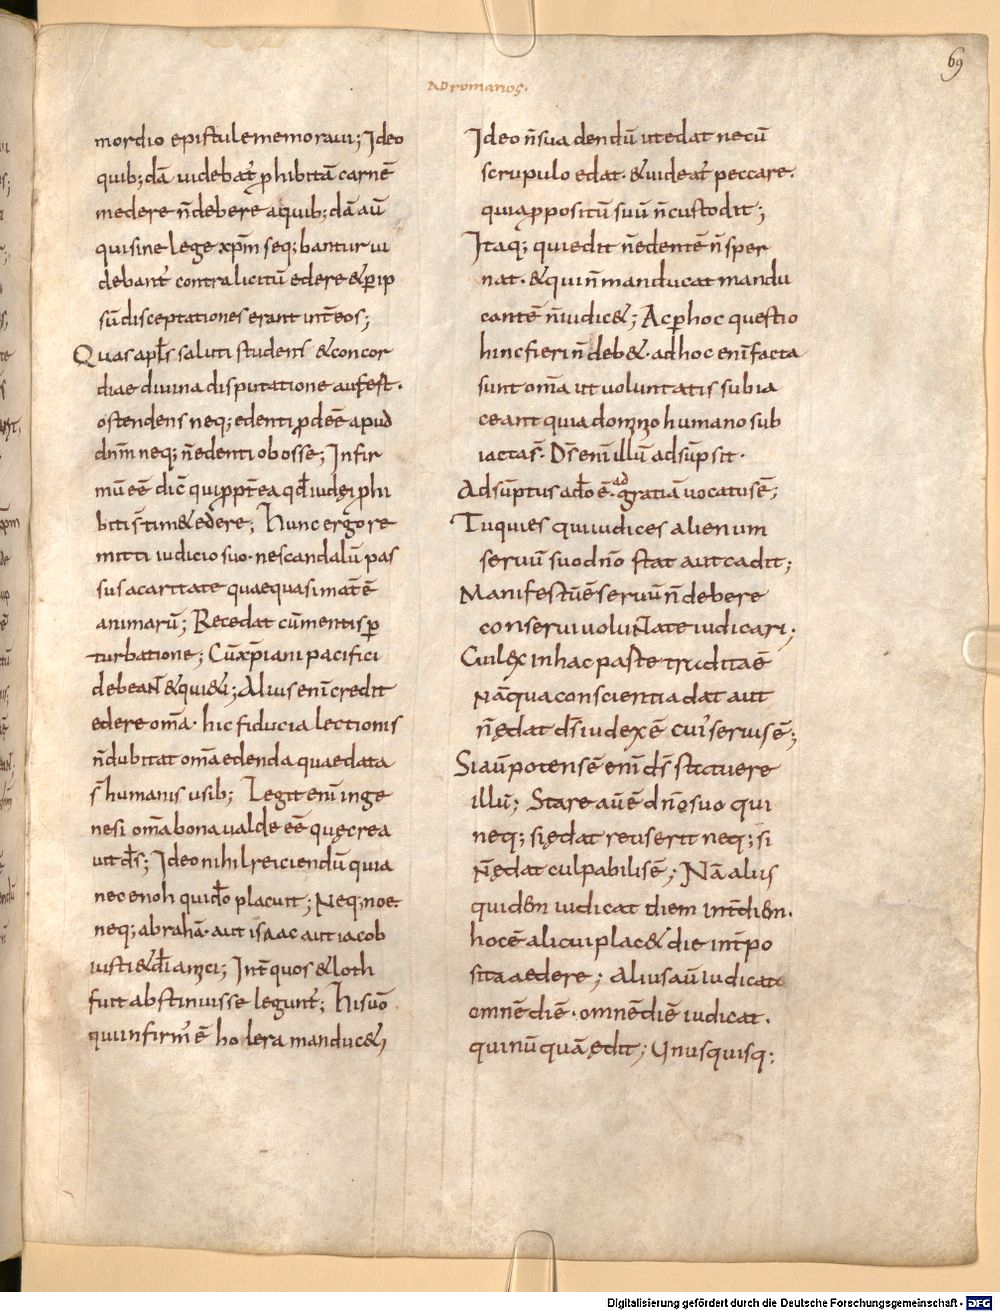 69
AD romanos.
mordio epistule memoraui; Ideo
quib; dā uidebat̄ ꝓhibitā carnē
medere n̄ debere aquib; dā aū
qui sine lege xp̄m seq;bantur ui
debant̄ contra licitū edere & ꝑ ip
sū disceptationes erant int̄ eos;
Quas apl̄s saluti studens & concor
diae diuina disputatione aufest.
ostendens neq; edenti ꝓdeē apud
dn̄m neq; n̄ edenti obosse; Infir
mū eē dic̄ qui ꝓpt̄ ea qd̄ iudęi ꝓhi
biti s̄ tim& edere; Hunc ergo re
mitti iudicio suo. ne scandalū pas
sus a caritate quae quasi mat̄ ē
animarū; Recedat cū mentis ꝑ
turbatione; Cū xp̄iani pacifici
debeant & qui&i; Alius enī credit
edere om̄a. hic fiducia lectionis
n̄ dubitat om̄a edenda quae data
s̄ humanis usib; Legit enī in ge
nesi om̄a bona ualde eē quę crea
uit ds̄; Ideo nihil reiciendū quia
nec enoh qui do̅ placuit; Neq; noe.
neq; abrahā. aut isaac aut iacob
iusti & dī amici; Int̄ quos & loth
fuit abstinuisse legunt̄; His uō
qui infirm' ē holera manduc&
Ideo n̄ suadendū ut edat ne cū
scrupulo edat. & uideat̄ peccare.
quia ꝓpositū suū n̄ custodit;
Itaq; qui edit n̄ edentē n̄ sper
nat. & qui n̄ manducat mandu
cantē n̄ iudic&; Ac ꝑ hoc questio
hinc fieri n̄ deb&. ad hoc enī facta
sunt om̄a ut uoluntatis subia
ceant quia domino humano sub
iacta s̄. Ds̄ enī illū adsūpsit.
Adsūptus a do̅ ē. ad gratiā uocatus ē;
Tu quies qui iudices alienum
seruū suo dn̄o stat aut cadit;
Manifestū ē seruū n̄ debere
conserui uoluntate iudicari;
Cui lex in hac parte tradita ē
Nā qua conscientia dat aut
n̄ ędat ds̄ iudex ē cui' seruus ē;
Si aū potens ē enī ds̄ statuere
illū; Stare aū ē dn̄o suo qui
neq; si ędat reus erit neq; si
n̄ ędat culpabilis ē; Nā alius
quidem iudicat diem int̄ diem.
hoc ē alicui plac& die int̄po
sita aedere; Alius aū iudicat
omnē diē. omnē diē iudicat.
qui nūquā ędit; Unusquisq;
Digitalisierung gefördert durch die Deutsche Forschungsgemeinschaft - DFG